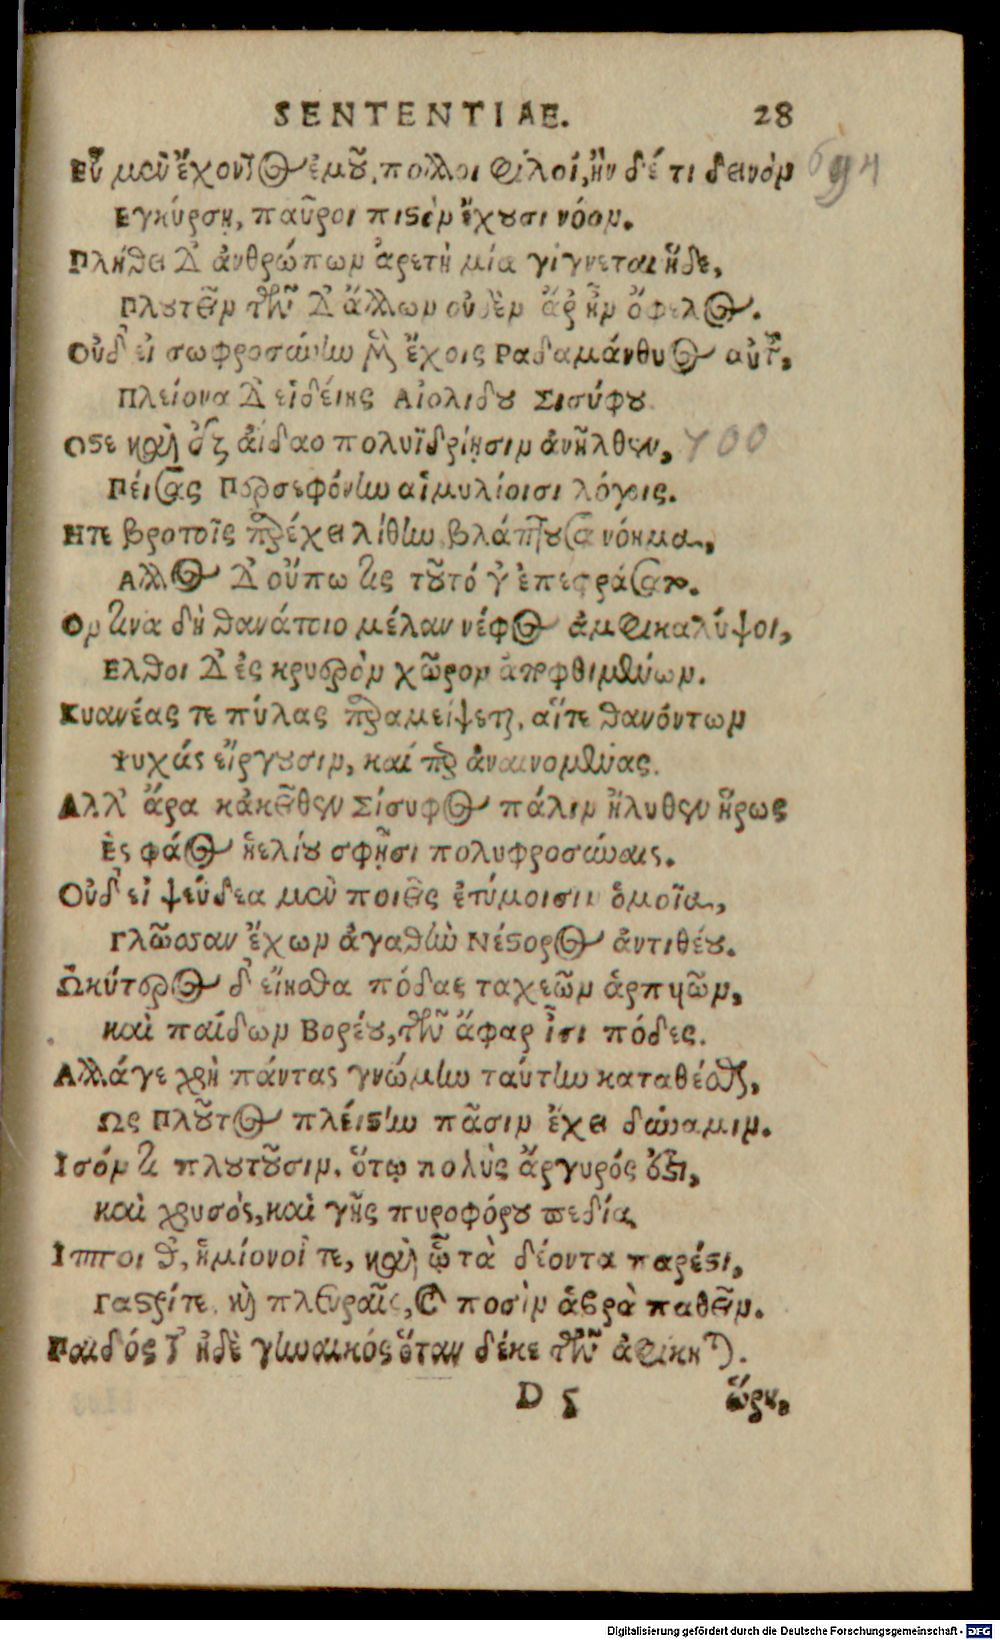 SENTENTIAE. 28
Εὖ μὲν ἔχοντος ἐμοῦ, πολλοι φίλοί, ἢν δέ τι δεινὸν 694
Εγκύρσῃ, παῦροι πιστὸν ἔχουσι νόον.
Πλήθει δ' ἀνθρώπων ἀρετὴ μία γίγνεται ἥδε,
Πλουτεῖν τῶν δ' ἄλλων οὐδὲν ἄρ' ἦν ὄφελος.
Οὐδ' εἰ σωφροσύνην μὲν ἔχοις Ραδαμάνθυος αὐτοῦ,
Πλείονα δ' εἰδείης Αἰολίδου Σισύφου
Οστε καὶ ἐξ ἀίδαο πολυϊδρίῃσιν ἀνῆλθεν, 700
Πείσας Περσεφόνην αἱμυλίοισι λόγοις.
Ητε βροτοῖς παρέχει λήθην βλάπτουσα νόημα,
Αλλος δ' οὔπω τις τοῦτό γ' ἐπεφράσατο.
Ον τινα δὴ θανάτοιο μέλαν νέφος ἀμφικαλύψοι,
Ελθοι δ' ἐς κρυερὸν χῶρον ἀποφθιμένων.
Κυανέας τε πύλας παραμείψεται, αἵτε θανόντων
Ψυχάς εἴργουσιν, καί περ ἀναινομένας.
Αλλ' ἄρα κἀκεῖθεν Σίσυφος πάλιν ἤλυθεν ἥρως
Ες φάος ἠελίου σφῇσι πολυφροσύναις.
Οὐδ' εἰ ψεύδεα μὲν ποιεῖς ἐτύμοισιν ὁμοῖα,
Γλῶσσαν ἔχων ἀγαθὴν Νέστορος ἀντιθέου.
Ωκύτερος δ' εἴησθα πόδας ταχεῶν ἁρπυῶν,
καὶ παίδων Βορέου, τῶν ἄφαρ εἰσι πόδες.
Αλλάγε χρὴ πάντας γνώμην ταύτην καταθέσθαι,
Ως Πλοῦτος πλείστην πᾶσιν ἔχει δύναμιν.
Ισόν τι πλουτοῦσιν, ὅτῳ πολὺς ἄργυρός ἐστι,
καὶ χρυσὸς, καὶ γῆς πυροφόρου πεδία
Ιπποι θ', ἡμίονοί τε, καὶ ᾧ τὰ δέοντα παρέστι,
Γαστρίτε, καὶ πλευραῖς, καὶ ποσὶν ἁβρὰ παθεῖν.
Παιδός τ' ἠδὲ γυναικός ὅταν δέκε τῶν ἀφίκηται.
D 5 ὥρη,
Digitalisierung gefördert durch die Deutsche Forschungsgemeinschaft - DFG